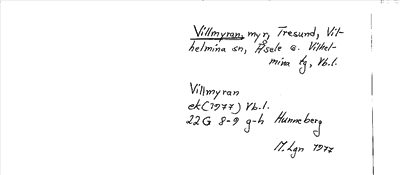 Villmyran, myr, Tresund, Vil-
helmina sn, Åsele o. Vilhel-
mina tg, Vb.l.
Villmyran
ek (1977) Vb.l.
22G 8-9 g-h Hunneberg
M. Lgn 1977